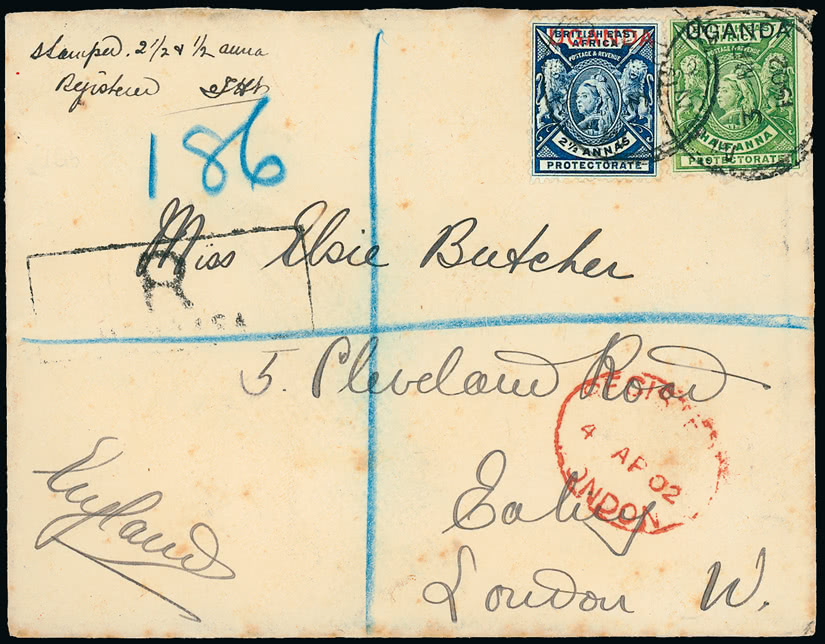 Stamped. 2½ & ½ anna
Registered
186
BRITISH EAST
AFRICA
UGANDA
POSTAGE & REVENUE
2½ ANNAS
PROTECTORATE
UGANDA
POSTAGE & REVENUE
HALF ANNA
PROTECTORATE
1902
R
Miss Elsie Butcher
5. Cleveland Road
Ealing
London W.
England
REGISTERED
4 AP 02
LONDON